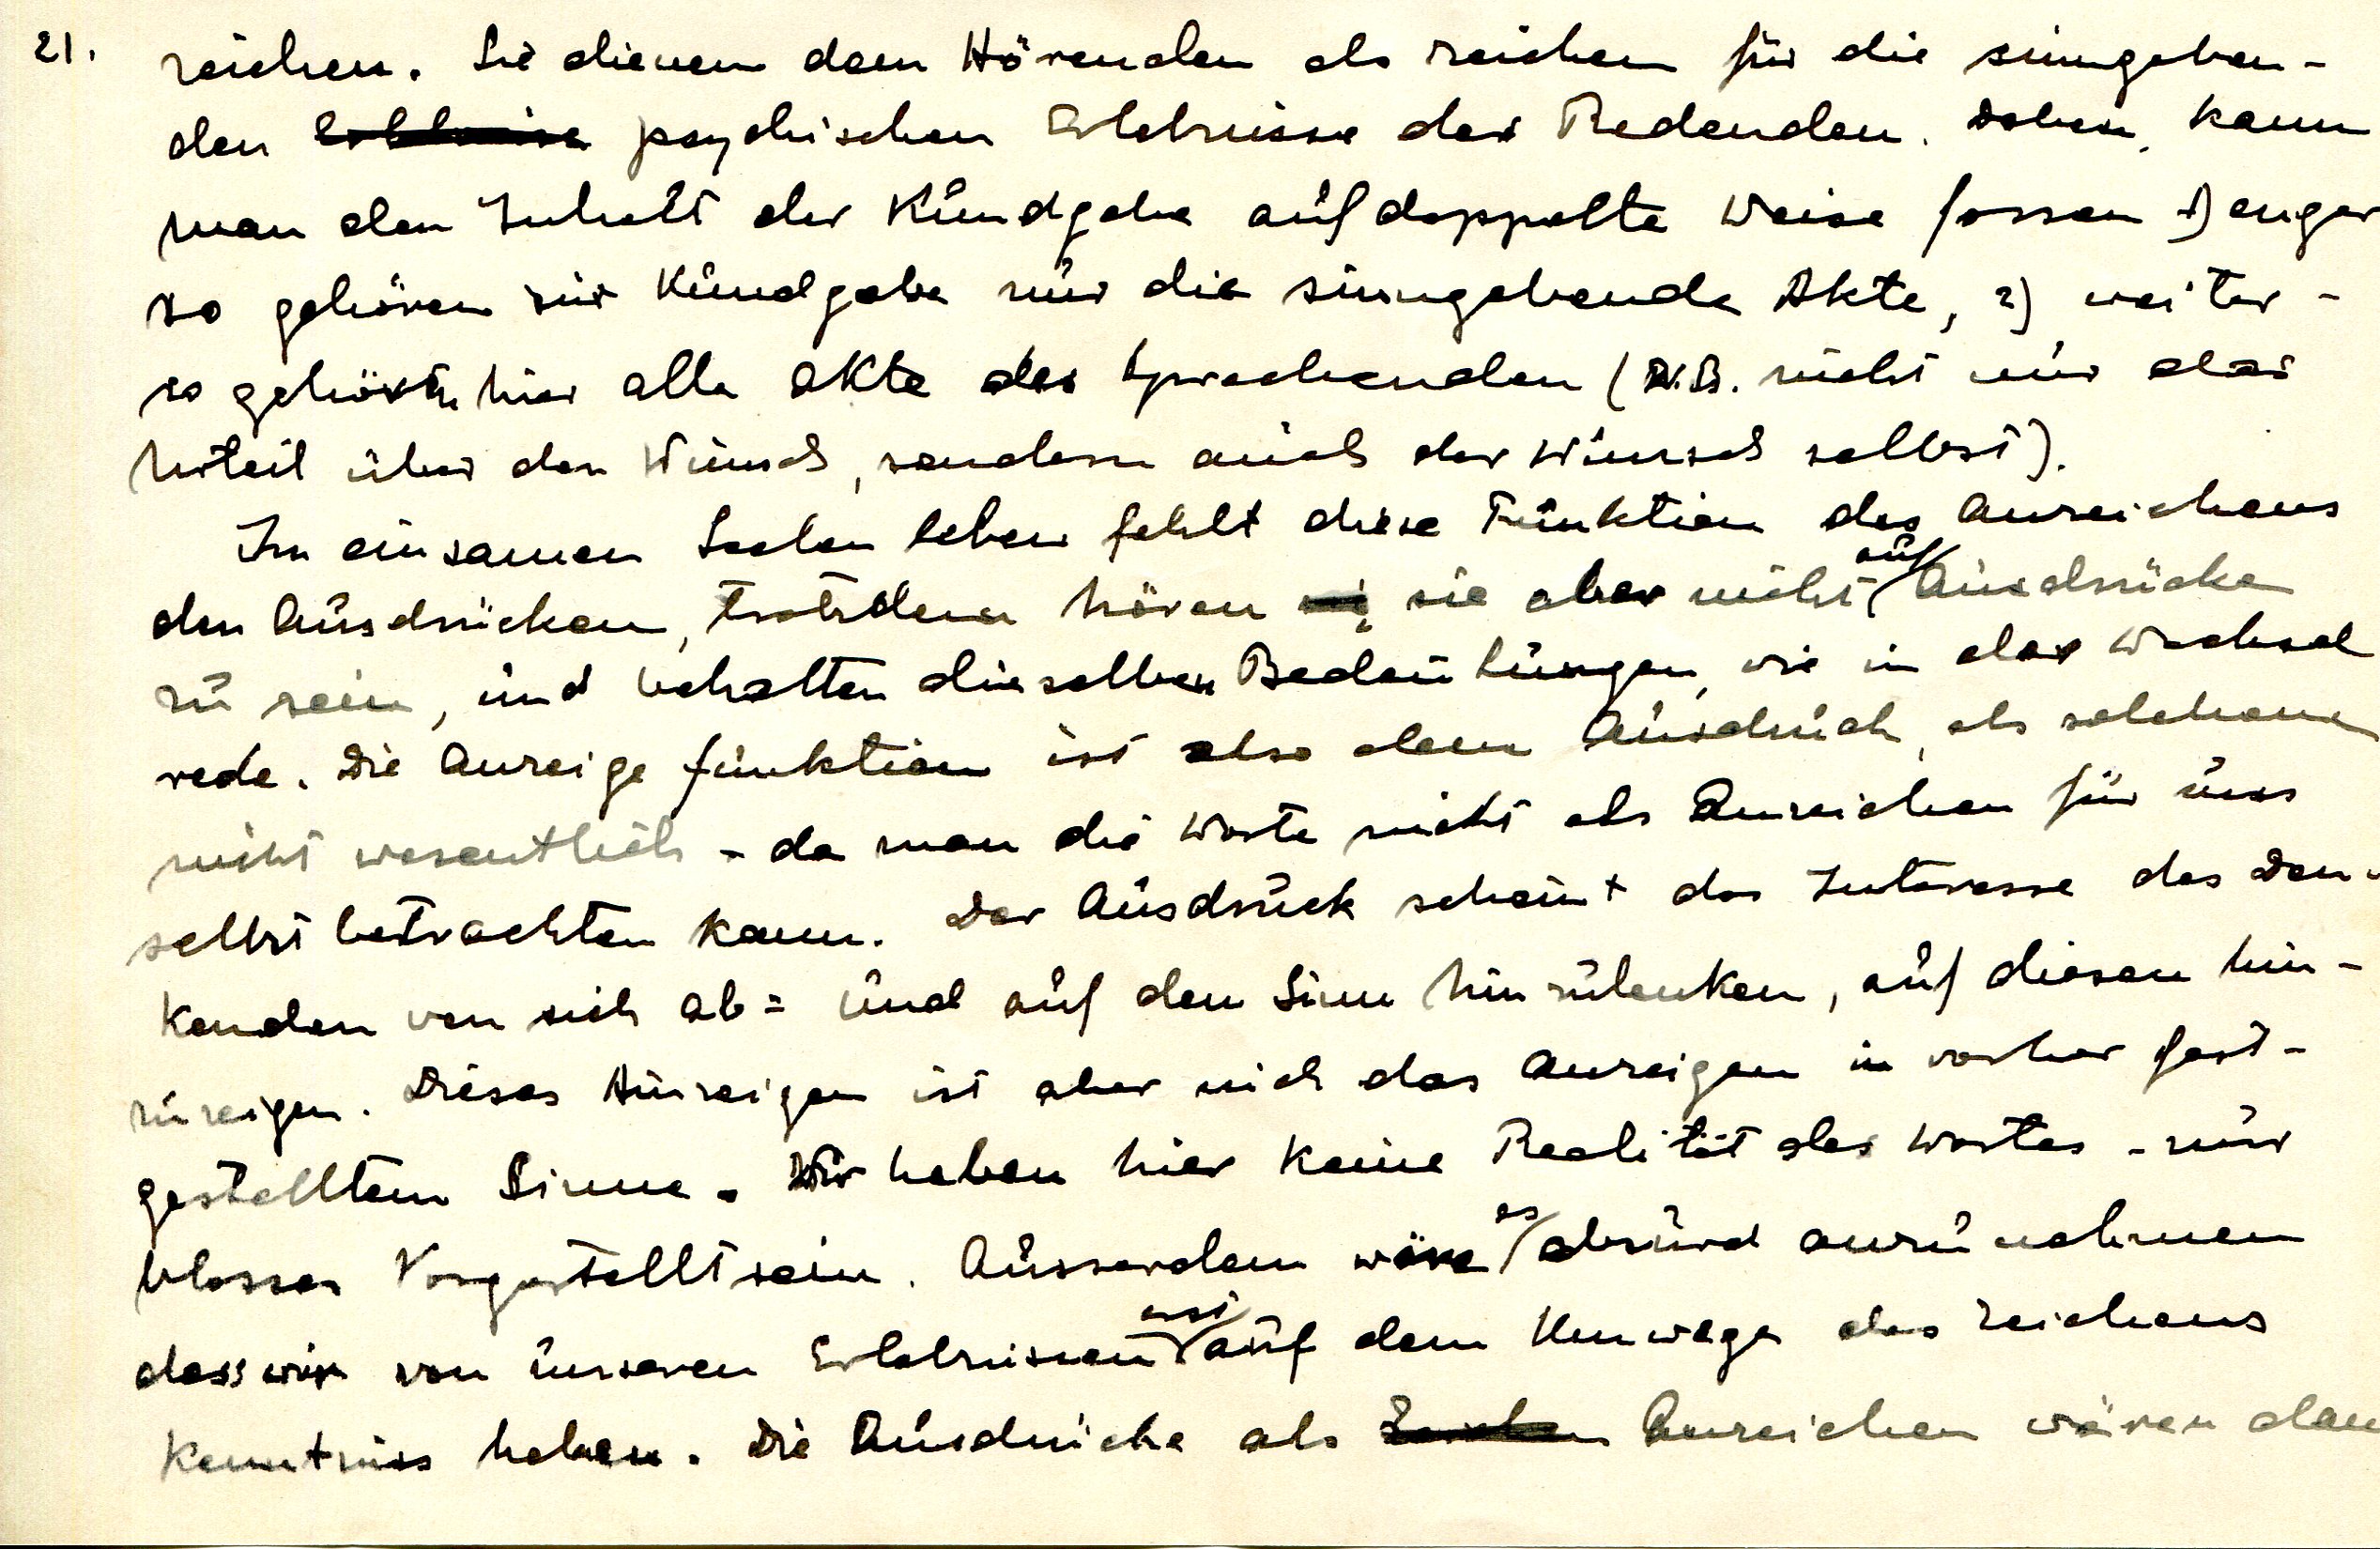 21. zeichen. Sie dienen dem Hörenden als zeichen für die sinngeben-
den psychischen Erlebnisse des Redenden. Dabei, kann
man den Inhalt der Kundgabe auf doppelte Weise fassen 1) enger
so gehören zur Kundgabe nur die sinngebende Akte, 2) weiter -
so gehören hier alle Akte des Sprechenden (z.B. nicht nur das
Urteil über den Wunsch, sondern auch der Wunsch selbst).
Im einsamen Seelen leben fehlt diese Funktion des Anzeichens
den Ausdrücken, trotzdem hören sie aber nicht auf Ausdrücke
zu sein, und behalten dieselben Bedeutungen, wie in der Wechsel
rede. Die Anzeige funktion ist also dem Ausdruck, als solchem
nicht wesentlich - da man die Worte nicht als Anzeichen für uns
selbst betrachten kann. Der Ausdruck scheint das Interesse des Den-
kenden von sich ab= und auf den Sinn hinzulenken, auf diesen hin-
zuzeigen. Dieses Hinzeigen ist aber nich das Anzeigen in vorher fest-
gestelltem Sinne. Wir haben hier keine Realität des Wortes - nur
blosses Vorgestelltsein. Ausserdem wäre es absurd anzunehmen
dass wir von unseren Erlebnissen erst auf dem Umwege des Zeichens
Kenntniss haben. Die Ausdrücke als Anzeichen wären dan